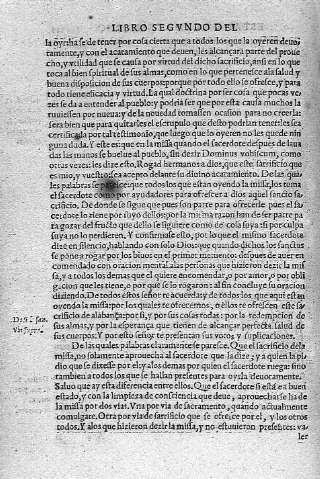 LIBRO SEGVNDO DEL
la oyrẽ se de tener por cosa cierta que a todos los que la oyeren deuo
ramente, y con el acatamiento que deuen, les alcançara parte del proue
cho, y vtilidad que se causa por virtud del dicho sacrificio, ansi en lo que
toca al bien spiritual de sus almas, como en lo que pertenesce ala salud y
buena disposicion de sus cuerpos: porque por todo ello se ofresce, y para
todo tiene eficacia y virtud. La qual doctrina por ser cosa que pocas ve
zes se da a entender al pueblo: y podria ser que por esta causa muchos la
tuuiessen por nueua: y de la nouedad tomassen ocasion para no creerla:
sera bien que para quitarles el escrupulo que desto podrian tener les sea
certificada por tal testimonio, que luego que lo oyeren no les quede nin
guna duda. Y este es: que en la missa quando el sacerdote despues de laua
das las manos se buelue al pueblo, sin dezir Dominus vobiscum, como
otras vezes: les dize esto, Rogad hermanos a dios, que este sacrificio que
es mio, y vuestro sea acepto delante su diuino acatamiento. De las qua
les palabras se que todos los que estan oyendo la missa, los toma
el sacerdote como por ayudadores para ofrescer a dios aquel sancto sa
crificio. De donde se sigue que pues son parte para ofrecerle pues el sa
cerdote lo tiene por suyo dellos: por la misma razon han de ser parte pa
ra gozar del fructo que dello se siguiere como de cosa suya si por culpa
suya no lo perdieren. Y confirmase esto, por lo que el mismo sacerdote
dize en silencio, hablando con solo Dios: que quando dichos los sanctus
se pone a rogar por los biuos en el primer memento: despues de auer en
comendado con oracion mental alas personas que hizieron dezir la mis
sa, y a todos los demas que el quiere encomendar, o por amor, o por obli
gacion que les tiene, o por que se lo rogaron: al fin concluye su oracion
diziendo. De todos estos señor te acuerda: y de todos los que aqui estan
oyendo la missa por los quales te ofrecemos, o ellos te ofrescen este sa
crificio de alabança por si, y por sus cosas todas: por la redempcion de
sus almas, y por la esperança que tienen de alcançar perfecta salud de
sus cuerpos: Y por esto señor te presentan sus votos y suplicaciones.
De las quales palabras claramente paresce. Que el sacrificio dela
missa, no solamente aprouecha al sacerdote que la dize: y a quien la pi
dio que se dixesse por el: y alos demas por quien el sacerdote ruega: sino
tambien a todos los que se hallan presentes para oyrla deuotamente.
Saluo que ay esta diferencia entre ellos. Que el sacerdote si esta en buen
estado, y con la limpieza de consciencia que deue, aprouecharse ha de
la missa por dos vias. Vna por via de sacramento, quando actualmente
comulgare. Otra por via de sacrificio que se ofrece por el, y los otros
todos. Y alos que hizieron dezir la missa, y no estuuieron presentes: va
ler